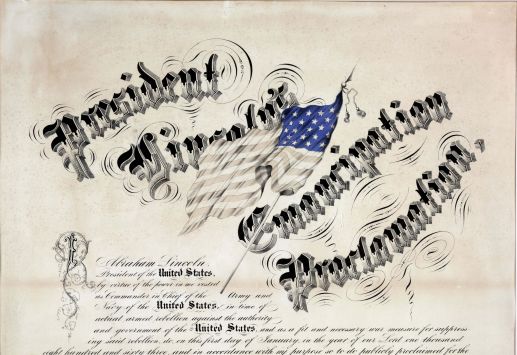 President
Lincoln's
Emancipation
Proclamation.
I, Abraham Lincoln
President of the United States,
by virtue of the power in me vested
as Commander in Chief of the Army and
Navy of the United States, in time of
actual armed rebellion against the authority
and government of the United States, and as a fit and necessary war measure for suppress
ing said rebellion, do, on this first day of January, in the year of our Lord one thousand
eight hundred and sixty three, and in accordance with my purpose so to do publicly proclaimed for the